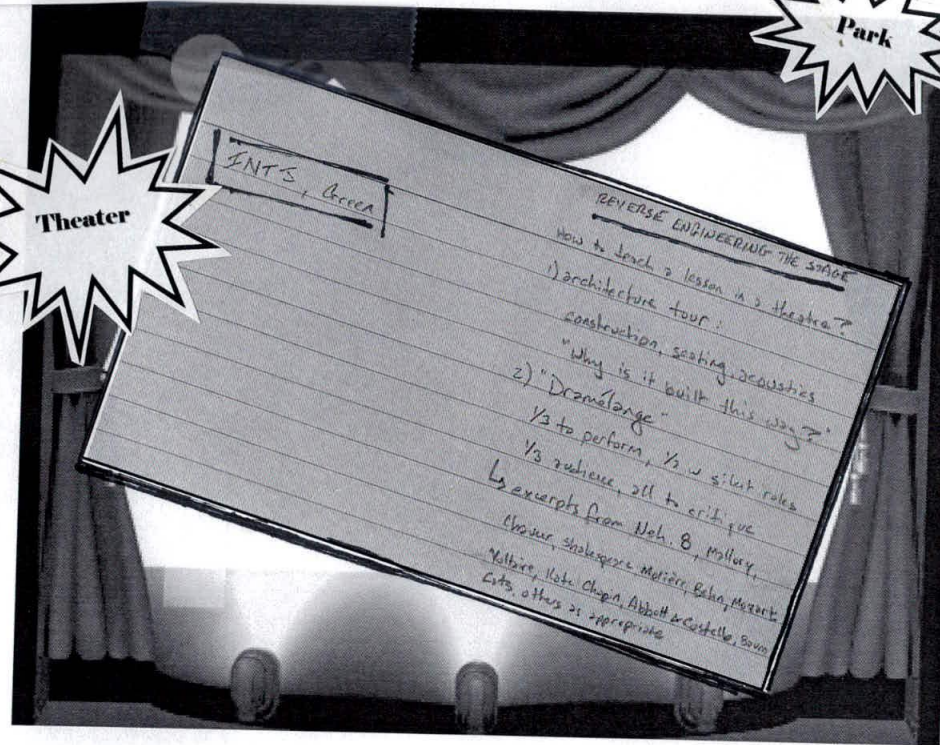 Park
Theater
INTJ, Green
REVERSE ENGINEERING THE STAGE
How to teach a lesson in a theatre?
1) architecture tour:
construction, seating, acoustics
"Why is it built this way?"
2) "Dramélange"
1/3 to perform, 1/3 w silent roles
1/3 audience, all to critique
↳ excerpts from Neh. 8, Mallory,
Chaucer, Shakespeare, Molière, Behn, Mozart
Voltaire, Kate Chopin, Abbott & Costello, Baum
Cats, others as appropriate